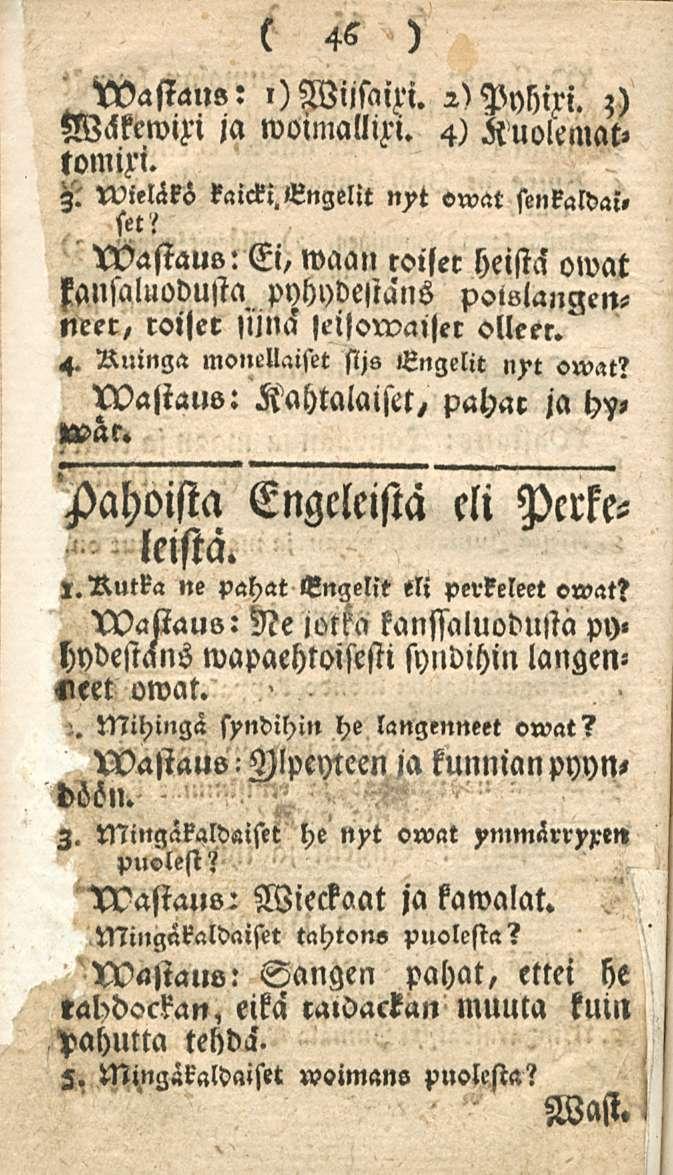 ( 46 )
Wastaus: 1) Wiisaixi. 2) Pyhixi. 3)
Wäkewixi ja woimallixi. 4) Kuolemat-
tomixi.
3. Wieläkö kaicki Engelit nyt owat senkaldai-
set?
Wastaus: Ei, waan toiset heistä owat
kansaluodusta pyhydestäns poislangen-
neet, toiset siinä seisowaiset olleet.
4. Kuinga monellaiset sijs Engelit nyt owat?
Wastaus: Kahtalaiset, pahat ja hy-
wät.
Pahoista Engeleistä eli Perke-
leistä.
1. Kutka ne pahat Engelit eli perkeleet owat?
Wastaus: Ne jotka kanssaluodusta py-
hydestäns wapaehtoisesti syndihin langen-
neet owat.
2. Mihingä syndihin he langenneet owat?
Wastaus: Ylpeyteen ja kunnian pyyn-
döön.
3. Mingäkaldaiset he nyt owat ymmärryxen
puolest?
Wastaus: Wieckaat ja kawalat.
Mingäkaldaiset tahtons puolesta?
Wastaus: Sangen pahat, ettei he
tahdockan, eikä taidackan muuta kuin
pahutta tehdä.
5. Mingäkaldaiset woimans puolesta?
Wast.